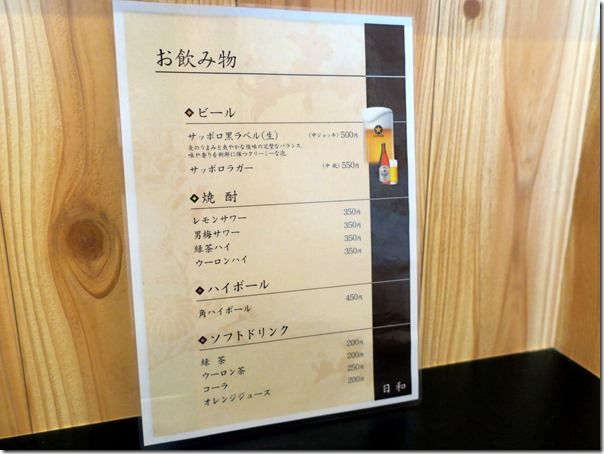 お飲み物
ビール
サッポロ黒ラベル(生) (中ジョッキ) 500円
麦のうまみと爽やかな後味の完璧なバランス。
味や香りを新鮮に保つクリーミーな泡。
サッポロラガー (中 瓶) 550円
焼 酎
レモンサワー 350円
男梅サワー 350円
緑茶ハイ 350円
ウーロンハイ 350円
ハイボール
角ハイボール 450円
ソフトドリンク
緑 茶 200円
ウーロン茶 200円
コーラ 250円
オレンジジュース 200円
日 和